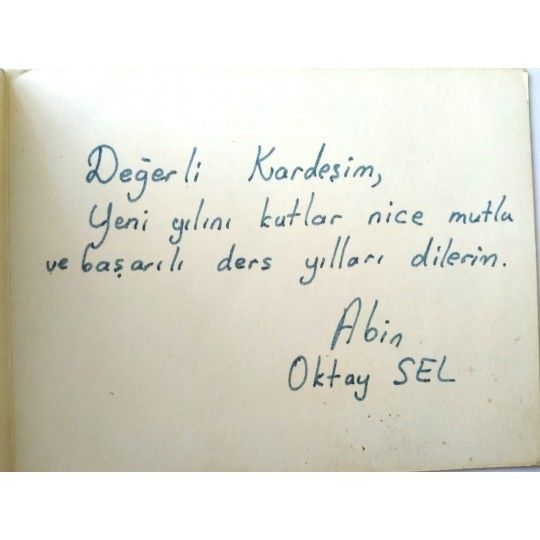 Değerli Kardeşim,
Yeni yılını kutlar nice mutlu
ve başarılı ders yılları dilerim.
Abin
Oktay SEL